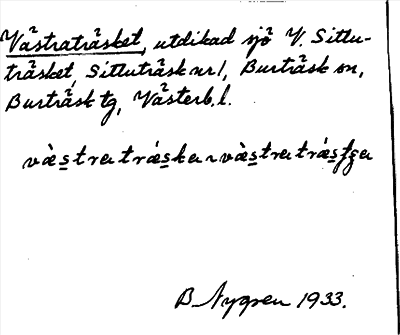 Västraträsket, utdikad sjö V. Sittu-
träsket, Sittuträsk nr 1, Burträsk sn,
Burträsk tg, Västerb. l.
væ̀stratrǽska ~ væ̀stratrǽsʃga
B Nygren 1933.